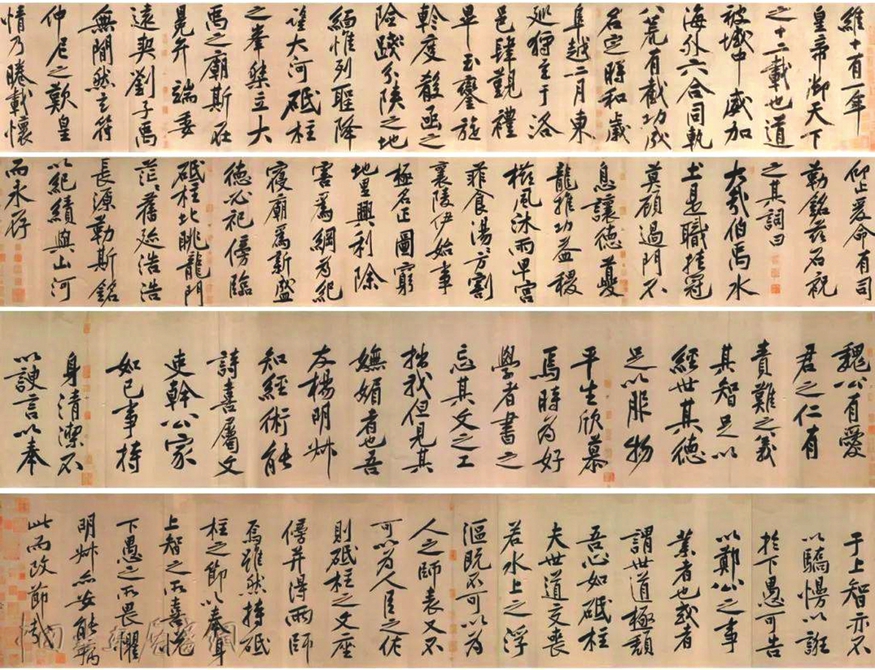 維十有一年
皇帝御天下
之十二載也道
被域中威加
海外六合同軌
八荒有截功成
名定時和歲
阜越二月東
巡狩至于洛
邑肆覲禮
畢玉鑾旋
軫度殽函之
險踐分陝之地
緬惟列聖降
望大河砥柱
之峯桀立大
禹之廟斯在
冕弁端委
遠契劉子禹
無閒然玄符
仲尼之歎皇
情乃睠載懷
仰止爰命有司
勒銘茲石祝
之其詞曰
大哉伯禹水
土是職挂冠
莫顧過門不
息讓德夔
龍推功益稷
櫛風沐雨卑宮
菲食湯湯方割
襄陵伊始事
極名正圖窮
地里興利除
害爲綱爲紀
寢廟爲新盛
德必祀傍臨
砥柱北眺龍門
茫茫舊迹浩浩
長源勒斯銘
以紀績與山河
而永存
魏公有愛
君之仁有
責難之義
其智足以
經世其德
足以服物
平生欣慕
焉時爲好
學者書之
忘其文之工
拙我但見其
嫵媚者也吾
友楊明叔
知經術能
詩喜屬文
吏幹公家
如己事持
身清潔不
以諛言以奉
于上智亦不
以驕慢以誑
於下愚可告
以鄭公之事
業者也或者
謂世道極頹
吾心如砥柱
夫世道交喪
若水上之浮
漚既不可以爲
人之師表又不
可以爲人臣之佐
則砥柱之文座
傍并得兩師
焉雖然持砥
柱之節以奉身
上智之所喜悅
下愚之所畏懼
明叔亦安能病
此而改節哉